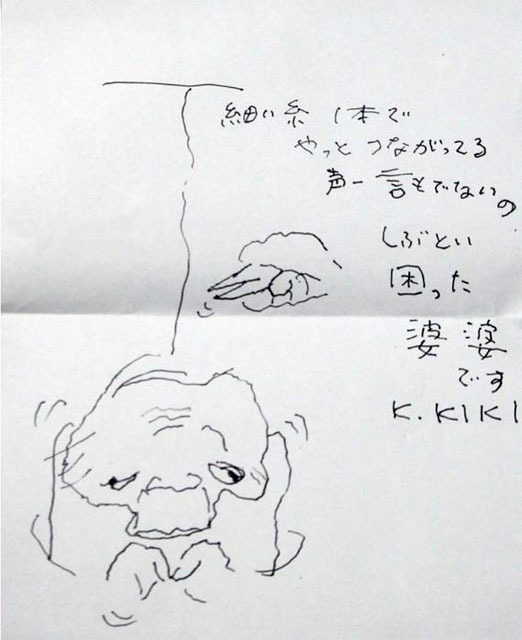 細い糸 1本で
やっと つながってる
声一言もでないの
しぶとい
困った
婆婆
です
K.KIKI